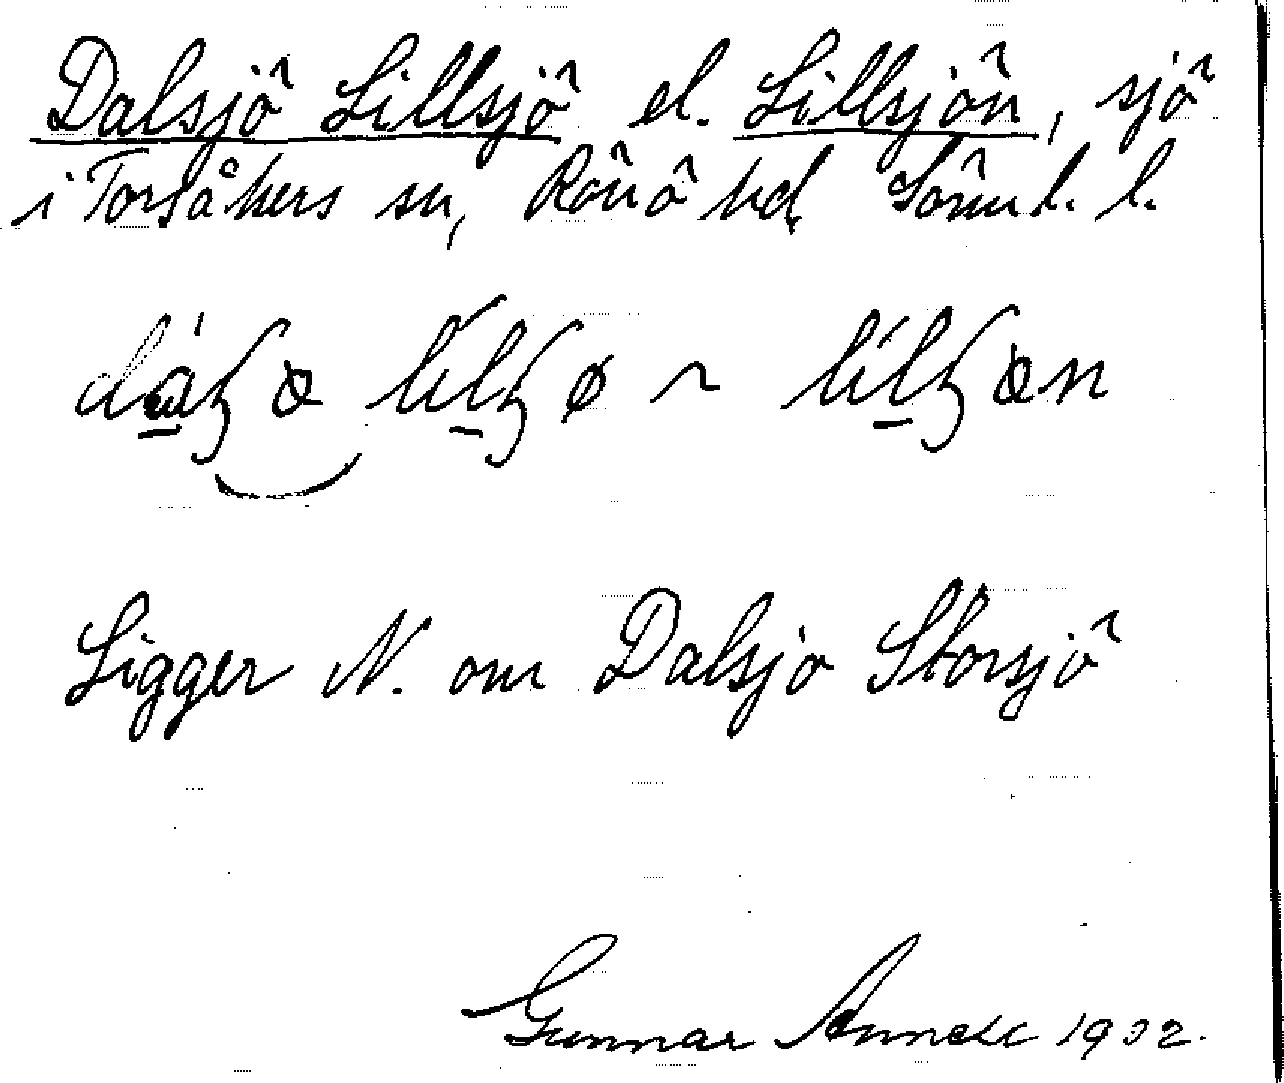 Dalsjö Lillsjö el. Lillsjön, sjö
i Torsåkers sn, Rönö hd Sörml. l.
Ligger N. om Dalsjö Storsjö
Gunnar 1932.